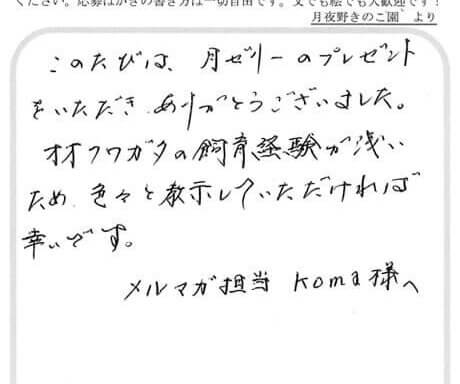 ください。応募はがきの書き方は一切自由です。文でも絵でも大歓迎です!
月夜野きのこ園 より
このたびは、月ゼリーのプレゼント
をいただき ありがとうございました。
オオクワガタの飼育経験が浅い
ため 色々と教示していただければ
幸いです。
メルマガ担当 Koma様へ